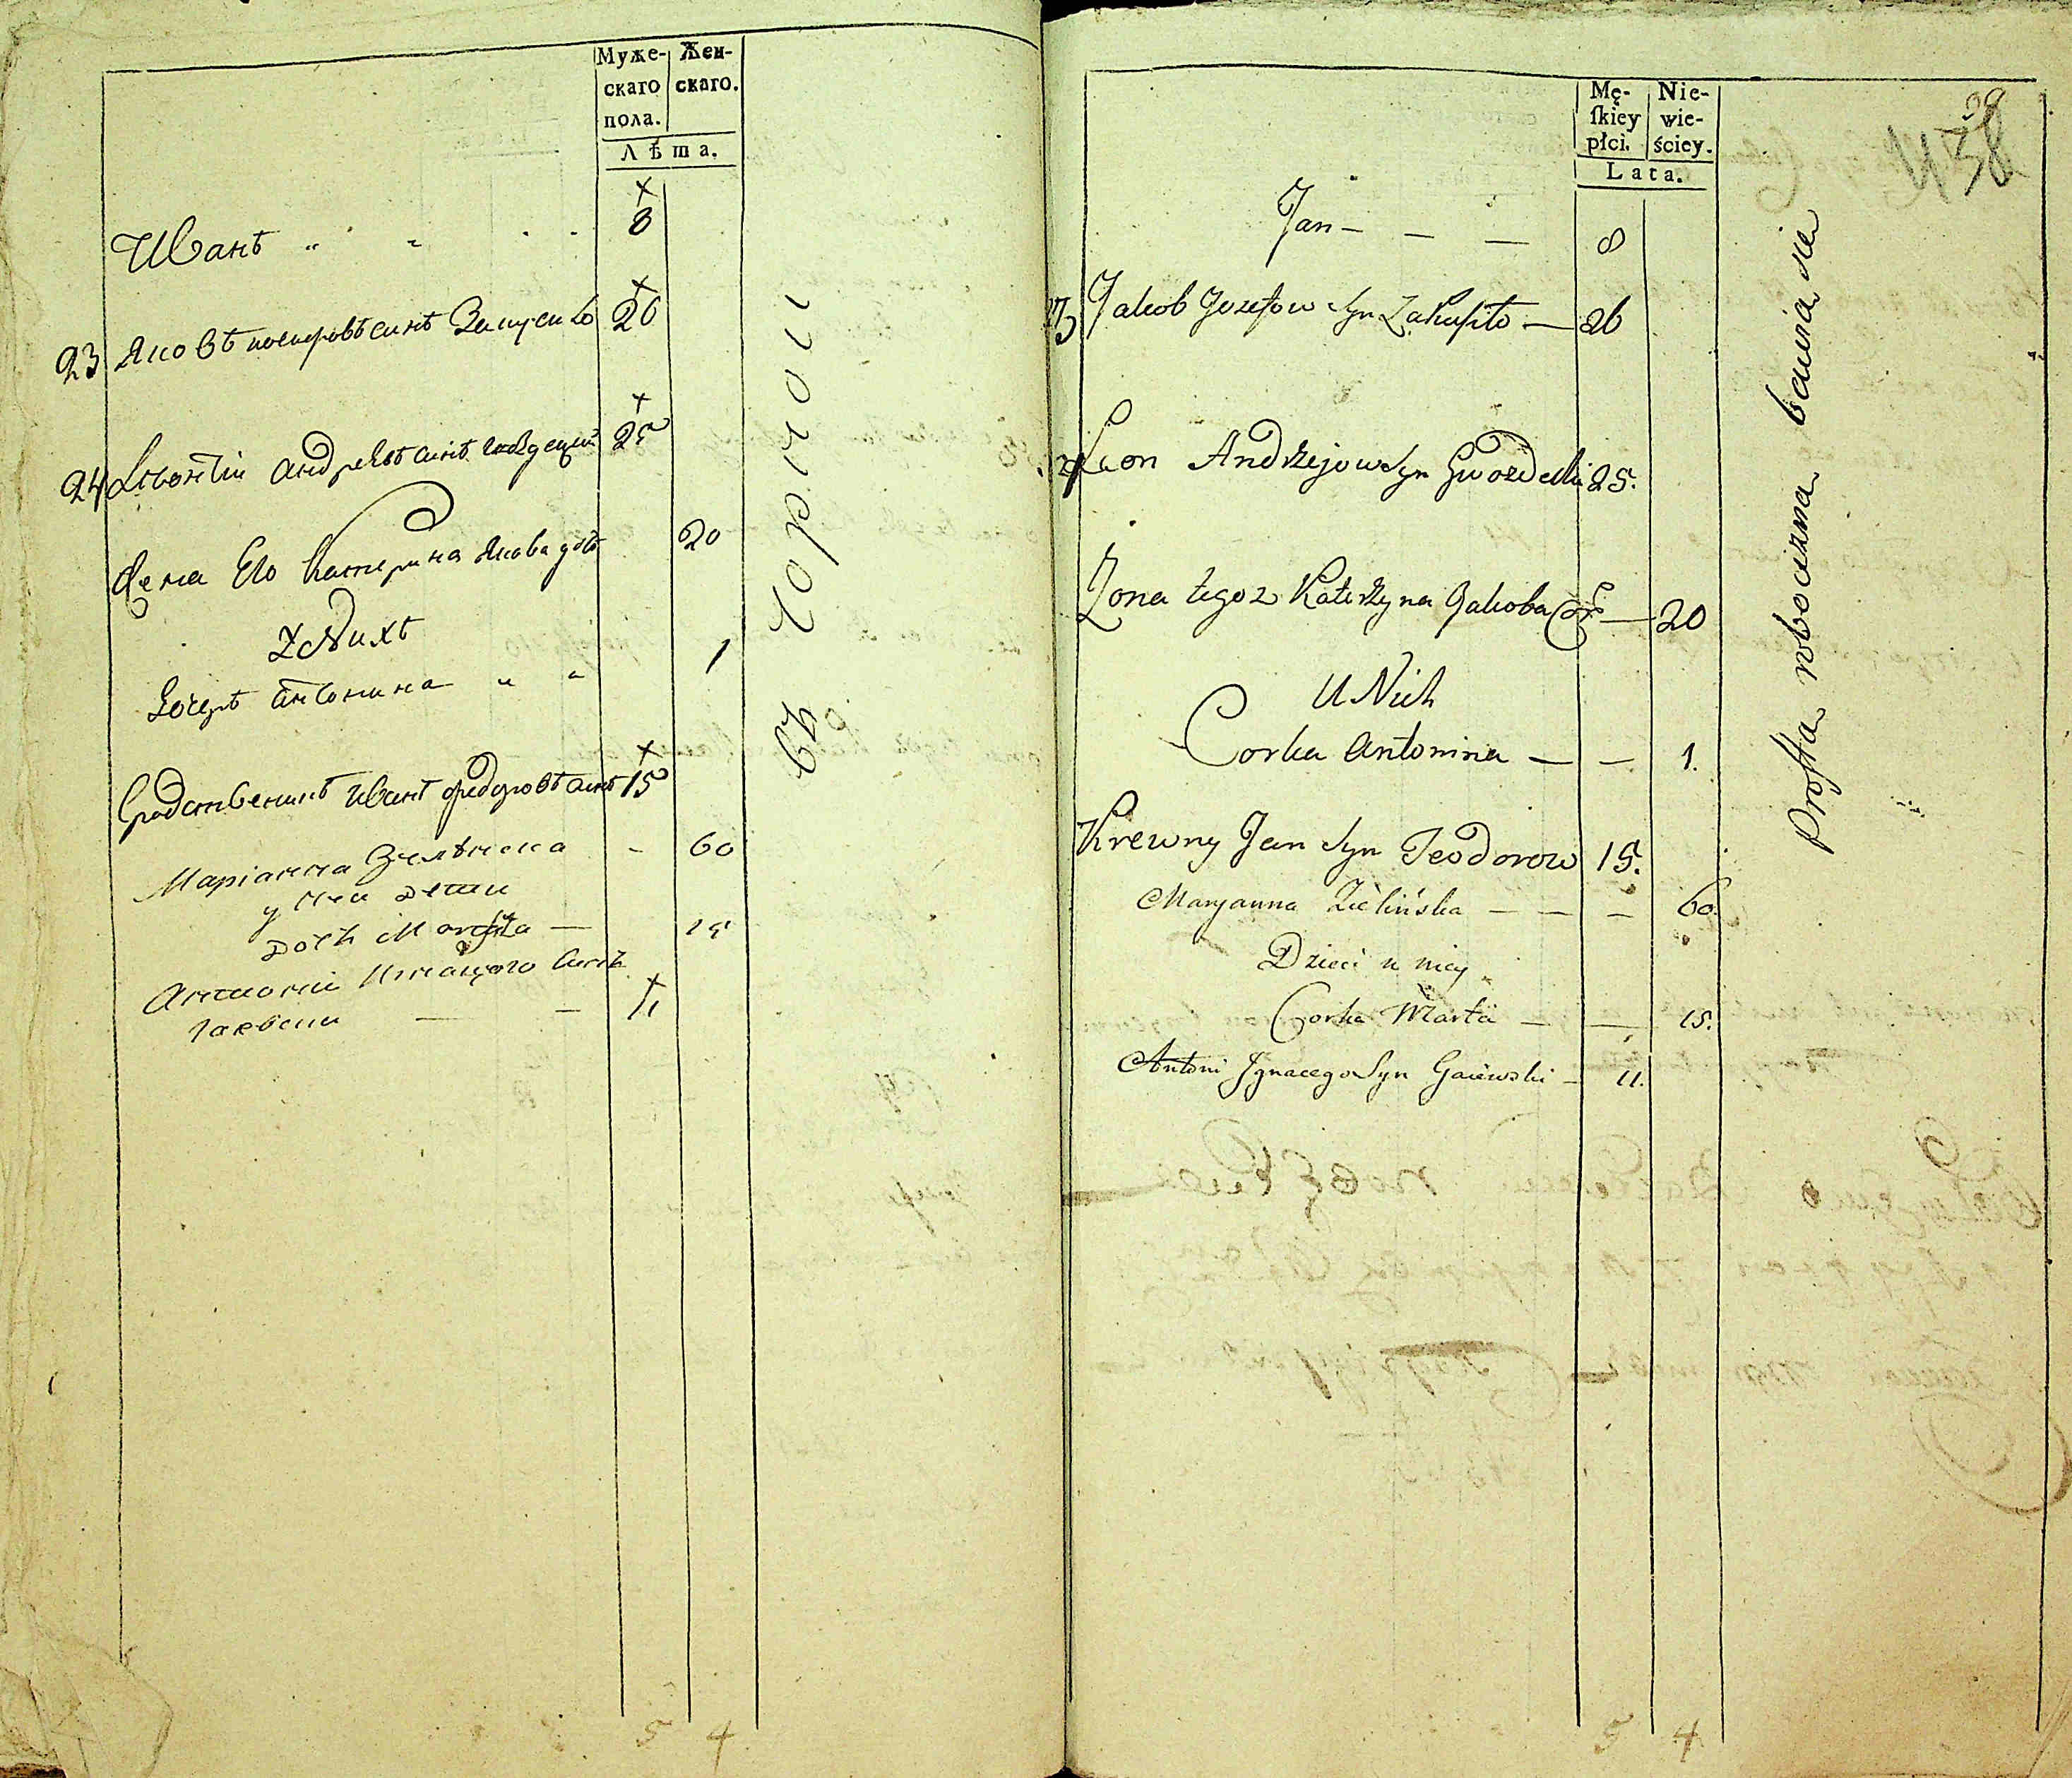 Муже-
скаго
пола.
Жен-
скаго.
Лѣта.
Иванъ 8
23 Яковъ синъ 26
24 Андреевъ синъ 25
Жена Его Катерина Якова 20
У Нихъ
Дочерь Антонина 1
Сродственикъ Иванъ Федоровъ синъ 15
Маріанна 60
у неи дети
дочь Марфа — 15
Антоніи Синъ
— — 11
5 4
Mę-
skiey
płci.
Nie-
wie-
ściey.
Lata.
39
438
Jan — — — 8
23 Jakob Jozefow Syn Zakusiło — 26
24 Leon Andrzejow Syn Gwozdecki 25.
Zona tegoz Katerzyna Jakoba Cor — 20
U Nich
Corka Antonina — — 1.
Krewny Jan Syn Teodorow 15.
Maryanna Zielińska — — — 60.
Dzieci u niey
Corka Marta — — 15.
Antoni Ignacego Syn Gaiewski — 11.
Prosta robocizna bawia sie
5 4